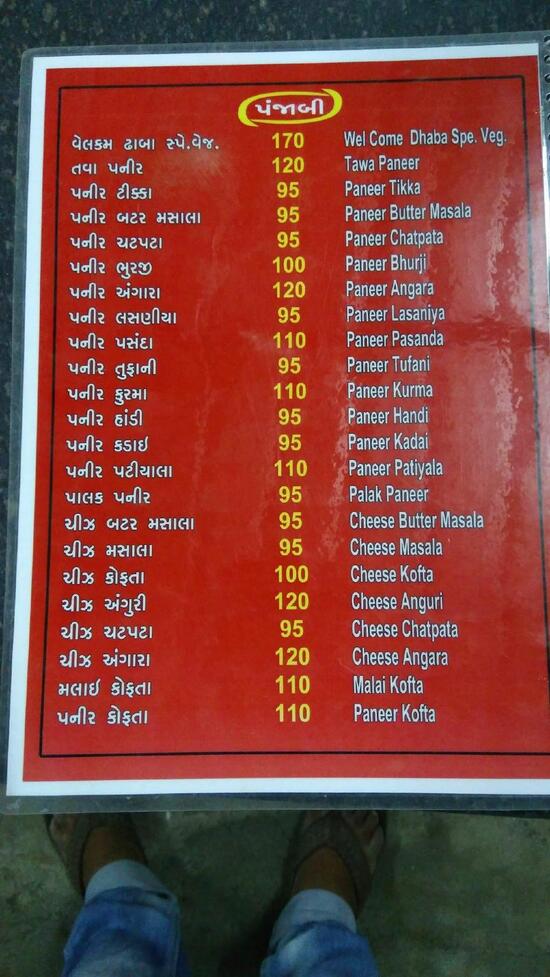 પંજાબી
વેલકમ ઢાબા સ્પે.વેજ. 170 Wel Come Dhaba Spe. Veg.
તવા પનીર 120 Tawa Paneer
પનીર ટીક્કા 95 Paneer Tikka
પનીર બટર મસાલા 95 Paneer Butter Masala
પનીર ચટપટા 95 Paneer Chatpata
પનીર ભુરજી 100 Paneer Bhurji
પનીર અંગારા 120 Paneer Angara
પનીર લસણીયા 95 Paneer Lasaniya
પનીર પસંદા 110 Paneer Pasanda
પનીર તુફાની 95 Paneer Tufani
પનીર કુરમા 110 Paneer Kurma
પનીર હાંડી 95 Paneer Handi
પનીર કડાઇ 95 Paneer Kadai
પનીર પટીયાલા 110 Paneer Patiyala
પાલક પનીર 95 Palak Paneer
ચીઝ બટર મસાલા 95 Cheese Butter Masala
ચીઝ મસાલા 95 Cheese Masala
ચીઝ કોફતા 100 Cheese Kofta
ચીઝ અંગુરી 120 Cheese Anguri
ચીઝ ચટપટા 95 Cheese Chatpata
ચીઝ અંગારા 120 Cheese Angara
મલાઇ કોફતા 110 Malai Kofta
પનીર કોફતા 110 Paneer Kofta